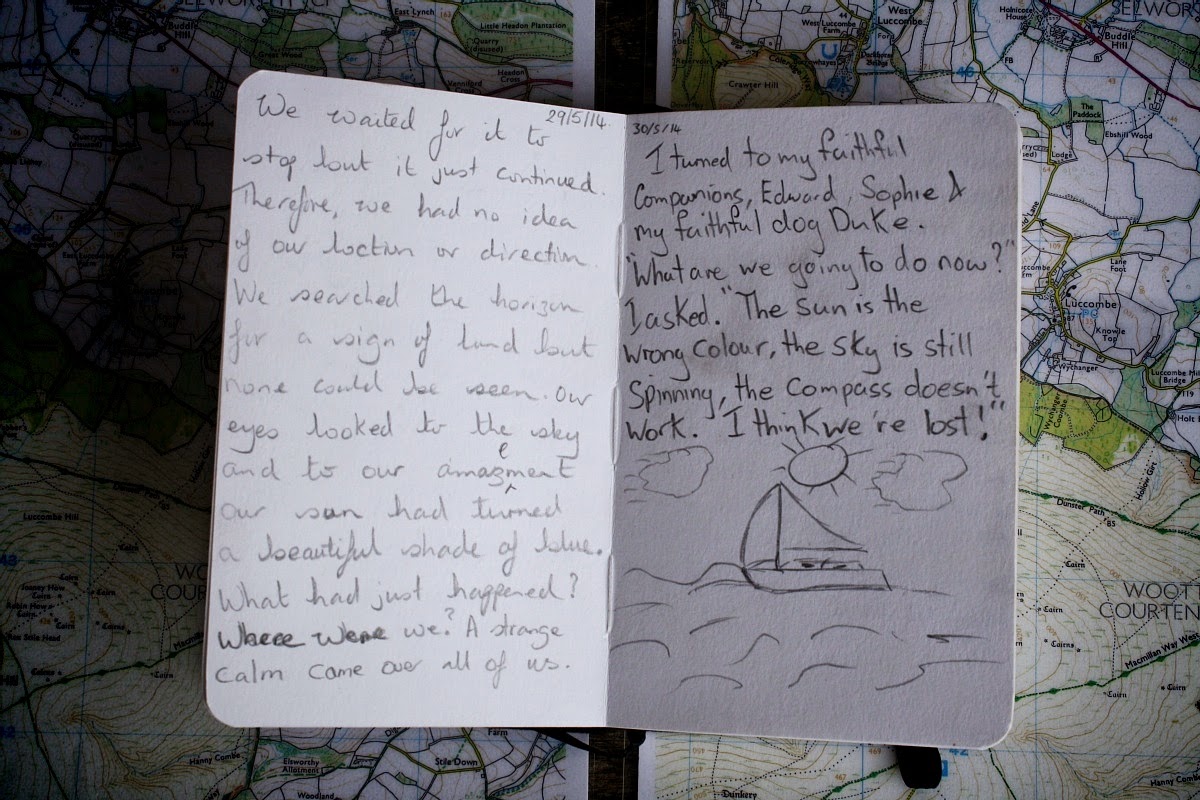 29/5/14
We waited for it to
stop but it just continued.
Therefore, we had no idea
of our loction or direction.
We searched the horizon
for a sign of land but
none could be seen. Our
eyes looked to the sky
and to our amazement
our sun had turned
a beautiful shade of blue.
What had just happened?
Where were we? A strange
calm came over all of us.
30/5/14
I turned to my faithful
Companions, Edward, Sophie &
my faithful dog Duke.
"What are we going to do now?"
I asked. "The sun is the
wrong colour, the sky is still
spinning, the compass doesn't
work. I think we're lost!"
East Lynch
Little Headon Plantation
Quarry
(disused)
Headon
Cross
Venniford
Cross
Buddle
Hill
West Luccombe
Farm
West
Luccombe
Crawter Hill
Holnicote
House
Buddle
Hill
FB
The
Paddock
Ebshill Wood
Lodge
Lane
Foot
Luccombe
Knowle
Top
Wychanger
Luccombe Mill
Bridge
119
Hollow Girt
Dunster Path
BS
Cairn
Cairn
Cairn
WOOT
COURTEN
Macmillan Way West
Cairn
Cairn
Luccombe Hill
Cairn
Joaney How
Cairn
Robin How
Cairn
Cairn
Cairn
Cairn
Hanny Combe
Elsworthy
Allotment
Woodland
Farm
Stile Down
42
Dunkery